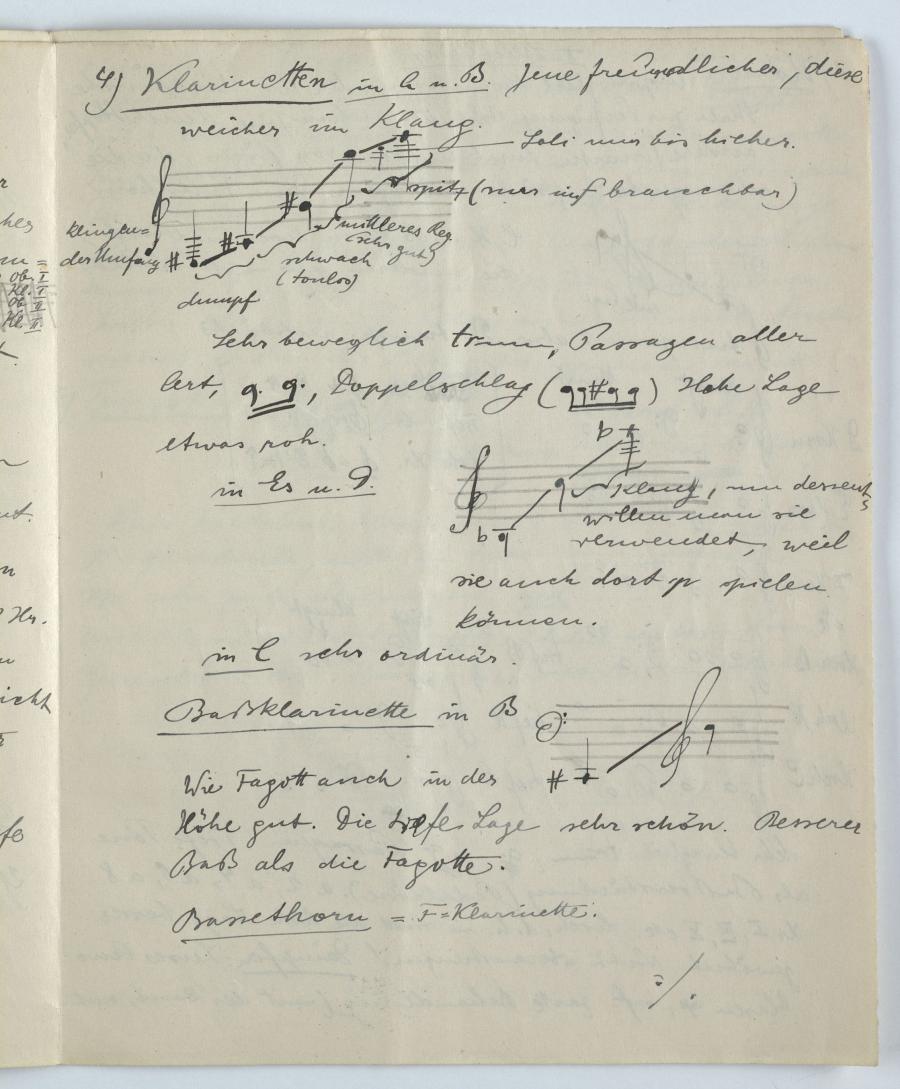 4) Klarinetten in A u. B. Jene freundlicher, diese
weicher im Klang.
Soli nur bis hieher.
spitz (nur im ff brauchbar)
klingen=
der Umfang
mittleres Reg.
(sehr gut)
schwach
(tonlos)
dumpf
Sehr beweglich tr, Passagen aller
Art, Doppelschlag ( ) Hohe Lage
etwas roh.
in Es u. D.
Klang, um dessent=
willen man sie
verwendet, weil
sie auch dort p spielen
können.
in C sehr ordinär.
Baßklarinette in B
Wie Fagott auch in der
Höhe gut. Die tiefe Lage sehr schön. Besserer
Baß als die Fagotte.
Bassethorn = F=Klarinette.